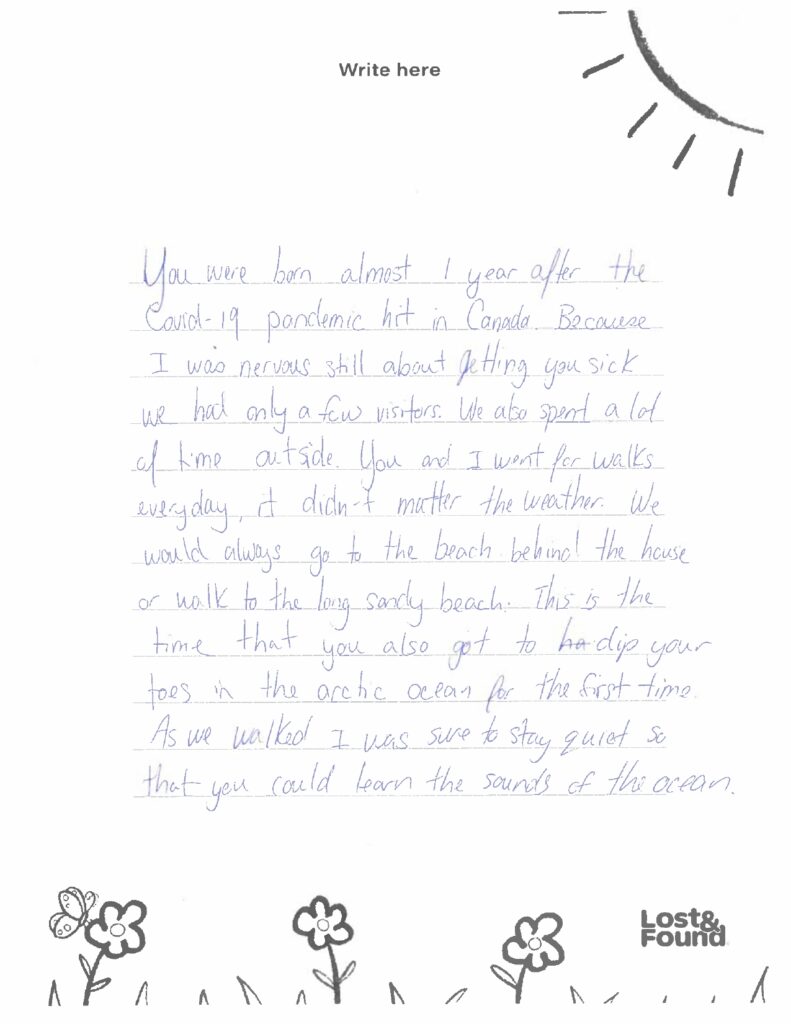 Write here
You were born almost 1 year after the
Covid-19 pandemic hit in Canada. Because
I was nervous still about getting you sick
we had only a few visitors. We also spent a lot
of time outside. You and I went for walks
everyday, it didn't matter the weather. We
would always go to the beach behind the house
or walk to the long sandy beach. This is the
time that you also got to ha dip your
toes in the arctic ocean for the first time.
As we walked I was sure to stay quiet so
that you could learn the sounds of the ocean.
Lost&
Found